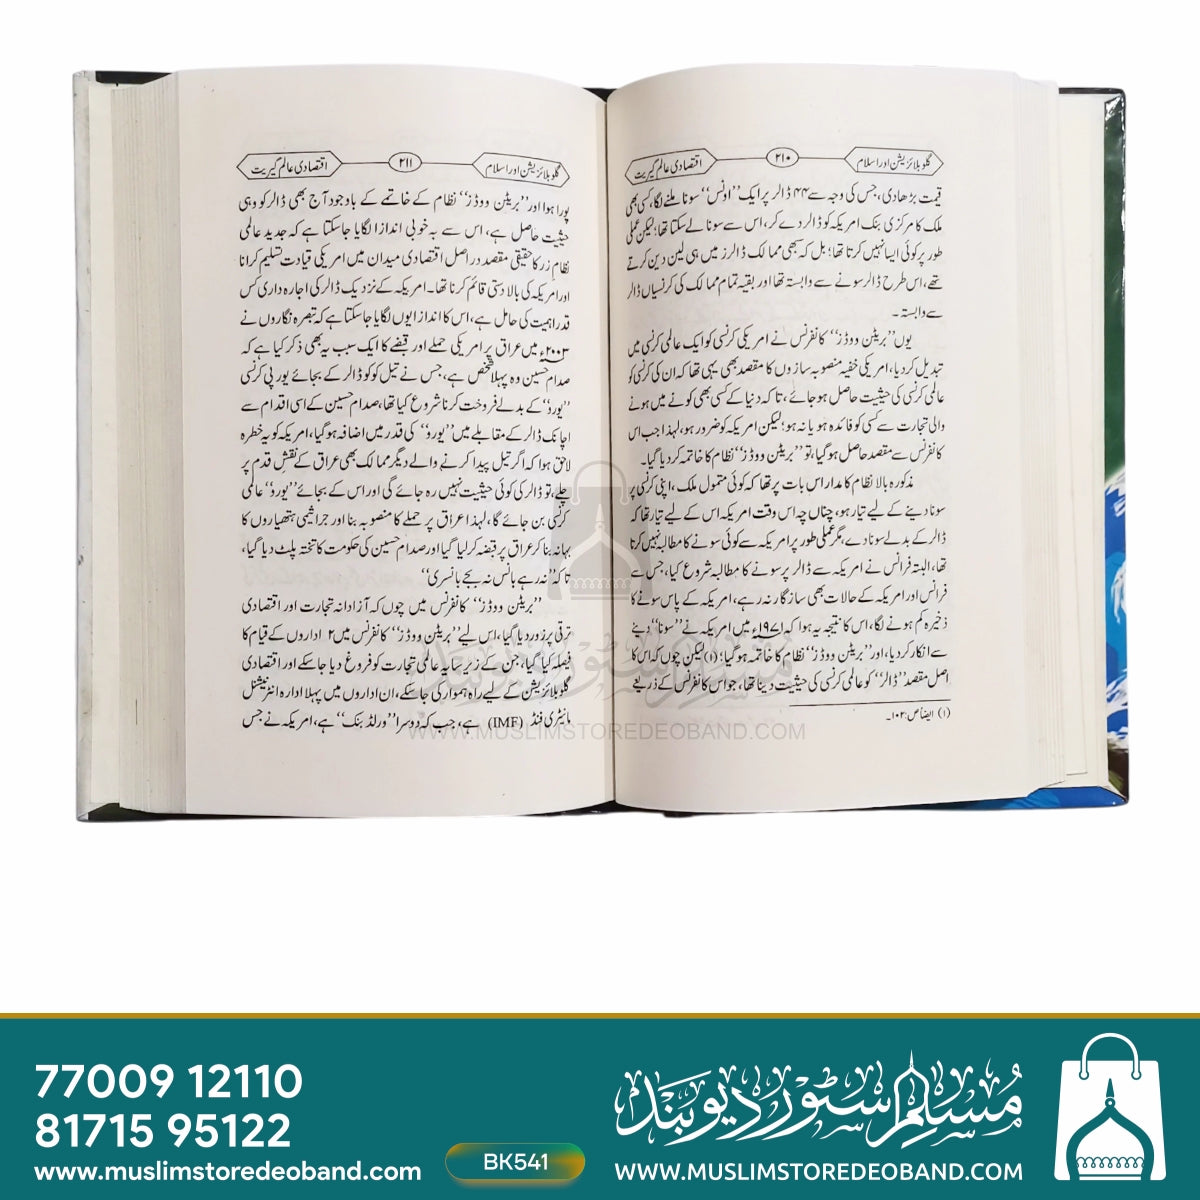 گلوبلائزیشن اور اسلام
۲۱۰
اقتصادی عالم گیریت
قیمت بڑھادی، جس کی وجہ سے ۴۴ ڈالر پر ایک ’’اونس‘‘ سونا ملنے لگا، کسی بھی
ملک کا مرکزی بنک امریکہ کو ڈالر دے کر، اس سے سونا لے سکتا تھا؛ لیکن عملی
طور پر کوئی ایسا نہیں کرتا تھا؛ بل کہ بھی ممالک ڈالرز میں ہی لین دین کرتے
تھے، اس طرح ڈالر سونے سے وابستہ تھا اور بقیہ تمام ممالک کی کرنسیاں ڈالر
سے وابستہ ۔
یوں ’’بریٹن ووڈز‘‘ کانفرنس نے امریکی کرنسی کو ایک عالمی کرنسی میں
تبدیل کردیا، امریکی خفیہ منصوبہ سازوں کا مقصد بھی یہی تھا کہ ان کی کرنسی کو
عالمی کرنسی کی حیثیت حاصل ہو جائے، تاکہ دنیا کے کسی بھی کونے میں ہونے
والی تجارت سے کسی کو فائدہ ہو یا نہ ہو؛ لیکن امریکہ کو ضرور ہو، لہذا جب اس
کانفرنس سے مقصد حاصل ہو گیا، تو ’’بریٹن ووڈز‘‘ نظام کا خاتمہ کردیا گیا۔
مذکورہ بالا نظام کا مدار اس بات پر تھا کہ کوئی متمول ملک، اپنی کرنسی پر
سونا دینے کے لیے تیار ہو، چناں چہ اس وقت امریکہ اس کے لیے تیار تھا کہ
ڈالر کے بدلے سونا دے، مگر عملی طور پر امریکہ سے کوئی سونے کا مطالبہ نہیں کرتا
تھا، البتہ فرانس نے امریکہ سے ڈالر پر سونے کا مطالبہ شروع کیا، جس سے
فرانس اور امریکہ کے حالات بھی سازگار نہ رہے، امریکہ کے پاس سونے کا
ذخیرہ کم ہونے لگا، اس کا نتیجہ یہ ہوا کہ ۱۹۷۱ء میں امریکہ نے ’’سونا‘‘ دینے
سے انکار کردیا، اور ’’بریٹن ووڈز‘‘ نظام کا خاتمہ ہو گیا؛ (۱) لیکن چوں کہ اس کا
اصل مقصد ’’ڈالر‘‘ کو عالمی کرنسی کی حیثیت دینا تھا، جو اس کانفرنس کے ذریعے
(۱) ایضاً ص: ۱۰۲۔
گلوبلائزیشن اور اسلام
۲۱۱
اقتصادی عالم گیریت
پورا ہوا اور ’’بریٹن ووڈز‘‘ نظام کے خاتمے کے باوجود آج بھی ڈالر کو وہی
حیثیت حاصل ہے، اس سے بہ خوبی اندازا لگایا جاسکتا ہے کہ جدید عالمی
نظام زر کا حقیقی مقصد دراصل اقتصادی میدان میں امریکی قیادت تسلیم کرانا
اور امریکہ کی بالادستی قائم کرنا تھا۔ امریکہ کے نزدیک ڈالر کی اجارہ داری کس
قدر اہمیت کی حامل ہے، اس کا اندازا یوں لگایا جاسکتا ہے کہ تبصرہ نگاروں نے
۲۰۰۳ء میں عراق پر امریکی حملے اور قبضے کا ایک سبب یہ بھی ذکر کیا ہے کہ
صدام حسین وہ پہلا شخص ہے، جس نے تیل کو ڈالر کے بجائے یورپی کرنسی
’’یورو‘‘ کے بدلے فروخت کرنا شروع کیا تھا، صدام حسین کے اسی اقدام سے
اچانک ڈالر کے مقابلے میں ’’یورو‘‘ کی قدر میں اضافہ ہو گیا، امریکہ کو یہ خطرہ
لاحق ہوا کہ اگر تیل پیدا کرنے والے دیگر ممالک بھی عراق کے نقش قدم پر
چلے، تو ڈالر کی کوئی حیثیت نہیں رہ جائے گی اور اس کے بجائے ’’یورو‘‘ عالمی
کرنسی بن جائے گا، لہذا عراق پر حملے کا منصوبہ بنا اور جراثیمی ہتھیاروں کا
بہانہ بنا کر عراق پر قبضہ کرلیا گیا اور صدام حسین کی حکومت کا تختہ پلٹ دیا گیا،
تاکہ ’’نہ رہے بانس نہ بجے بانسری‘‘
’’بریٹن ووڈز‘‘ کانفرنس میں چوں کہ آزادانہ تجارت اور اقتصادی
ترقی پر زور دیا گیا، اس لیے ’’بریٹن ووڈز‘‘ کانفرنس میں ۲ اداروں کے قیام کا
فیصلہ کیا گیا، جن کے زیر سایہ عالمی تجارت کو فروغ دیا جاسکے اور اقتصادی
گلوبلائزیشن کے لیے راہ ہموار کی جاسکے، ان اداروں میں پہلا ادارہ انٹرنیشنل
مانیٹری فنڈ (IMF) ہے، جب کہ دوسرا ’’ورلڈ بنک‘‘ ہے، امریکہ نے جس
مسلم سٹور دیوبند
WWW.MUSLIMSTOREDEOBAND.COM
77009 12110
81715 95122
www.muslimstoredeoband.com
BK541
مسلم سٹور دیوبند
WWW.MUSLIMSTOREDEOBAND.COM